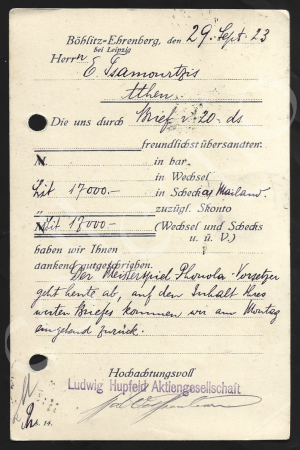 Böhlitz-Ehrenberg, den 29. Sept. 23
bei Leipzig
Herrn E. Tsamourtzis
Athen.
Die uns durch Brief v. 20. ds
freundlichst übersandten:
N in bar
in Wechsel
Lit 17000.— in Scheck a/ Mailand
„ zuzügl. Skonto
N Lit 17000.— (Wechsel und Schecks
u. ü. V.)
haben wir Ihnen
dankend gutgeschrieben.
Der Meisterspiel-Phonola-Vorsetzer
geht heute ab, auf den Inhalt Ihres
werten Briefes kommen wir am Montag
eingehend zurück.
Hochachtungsvoll
Ludwig Hupfeld Aktiengesellschaft